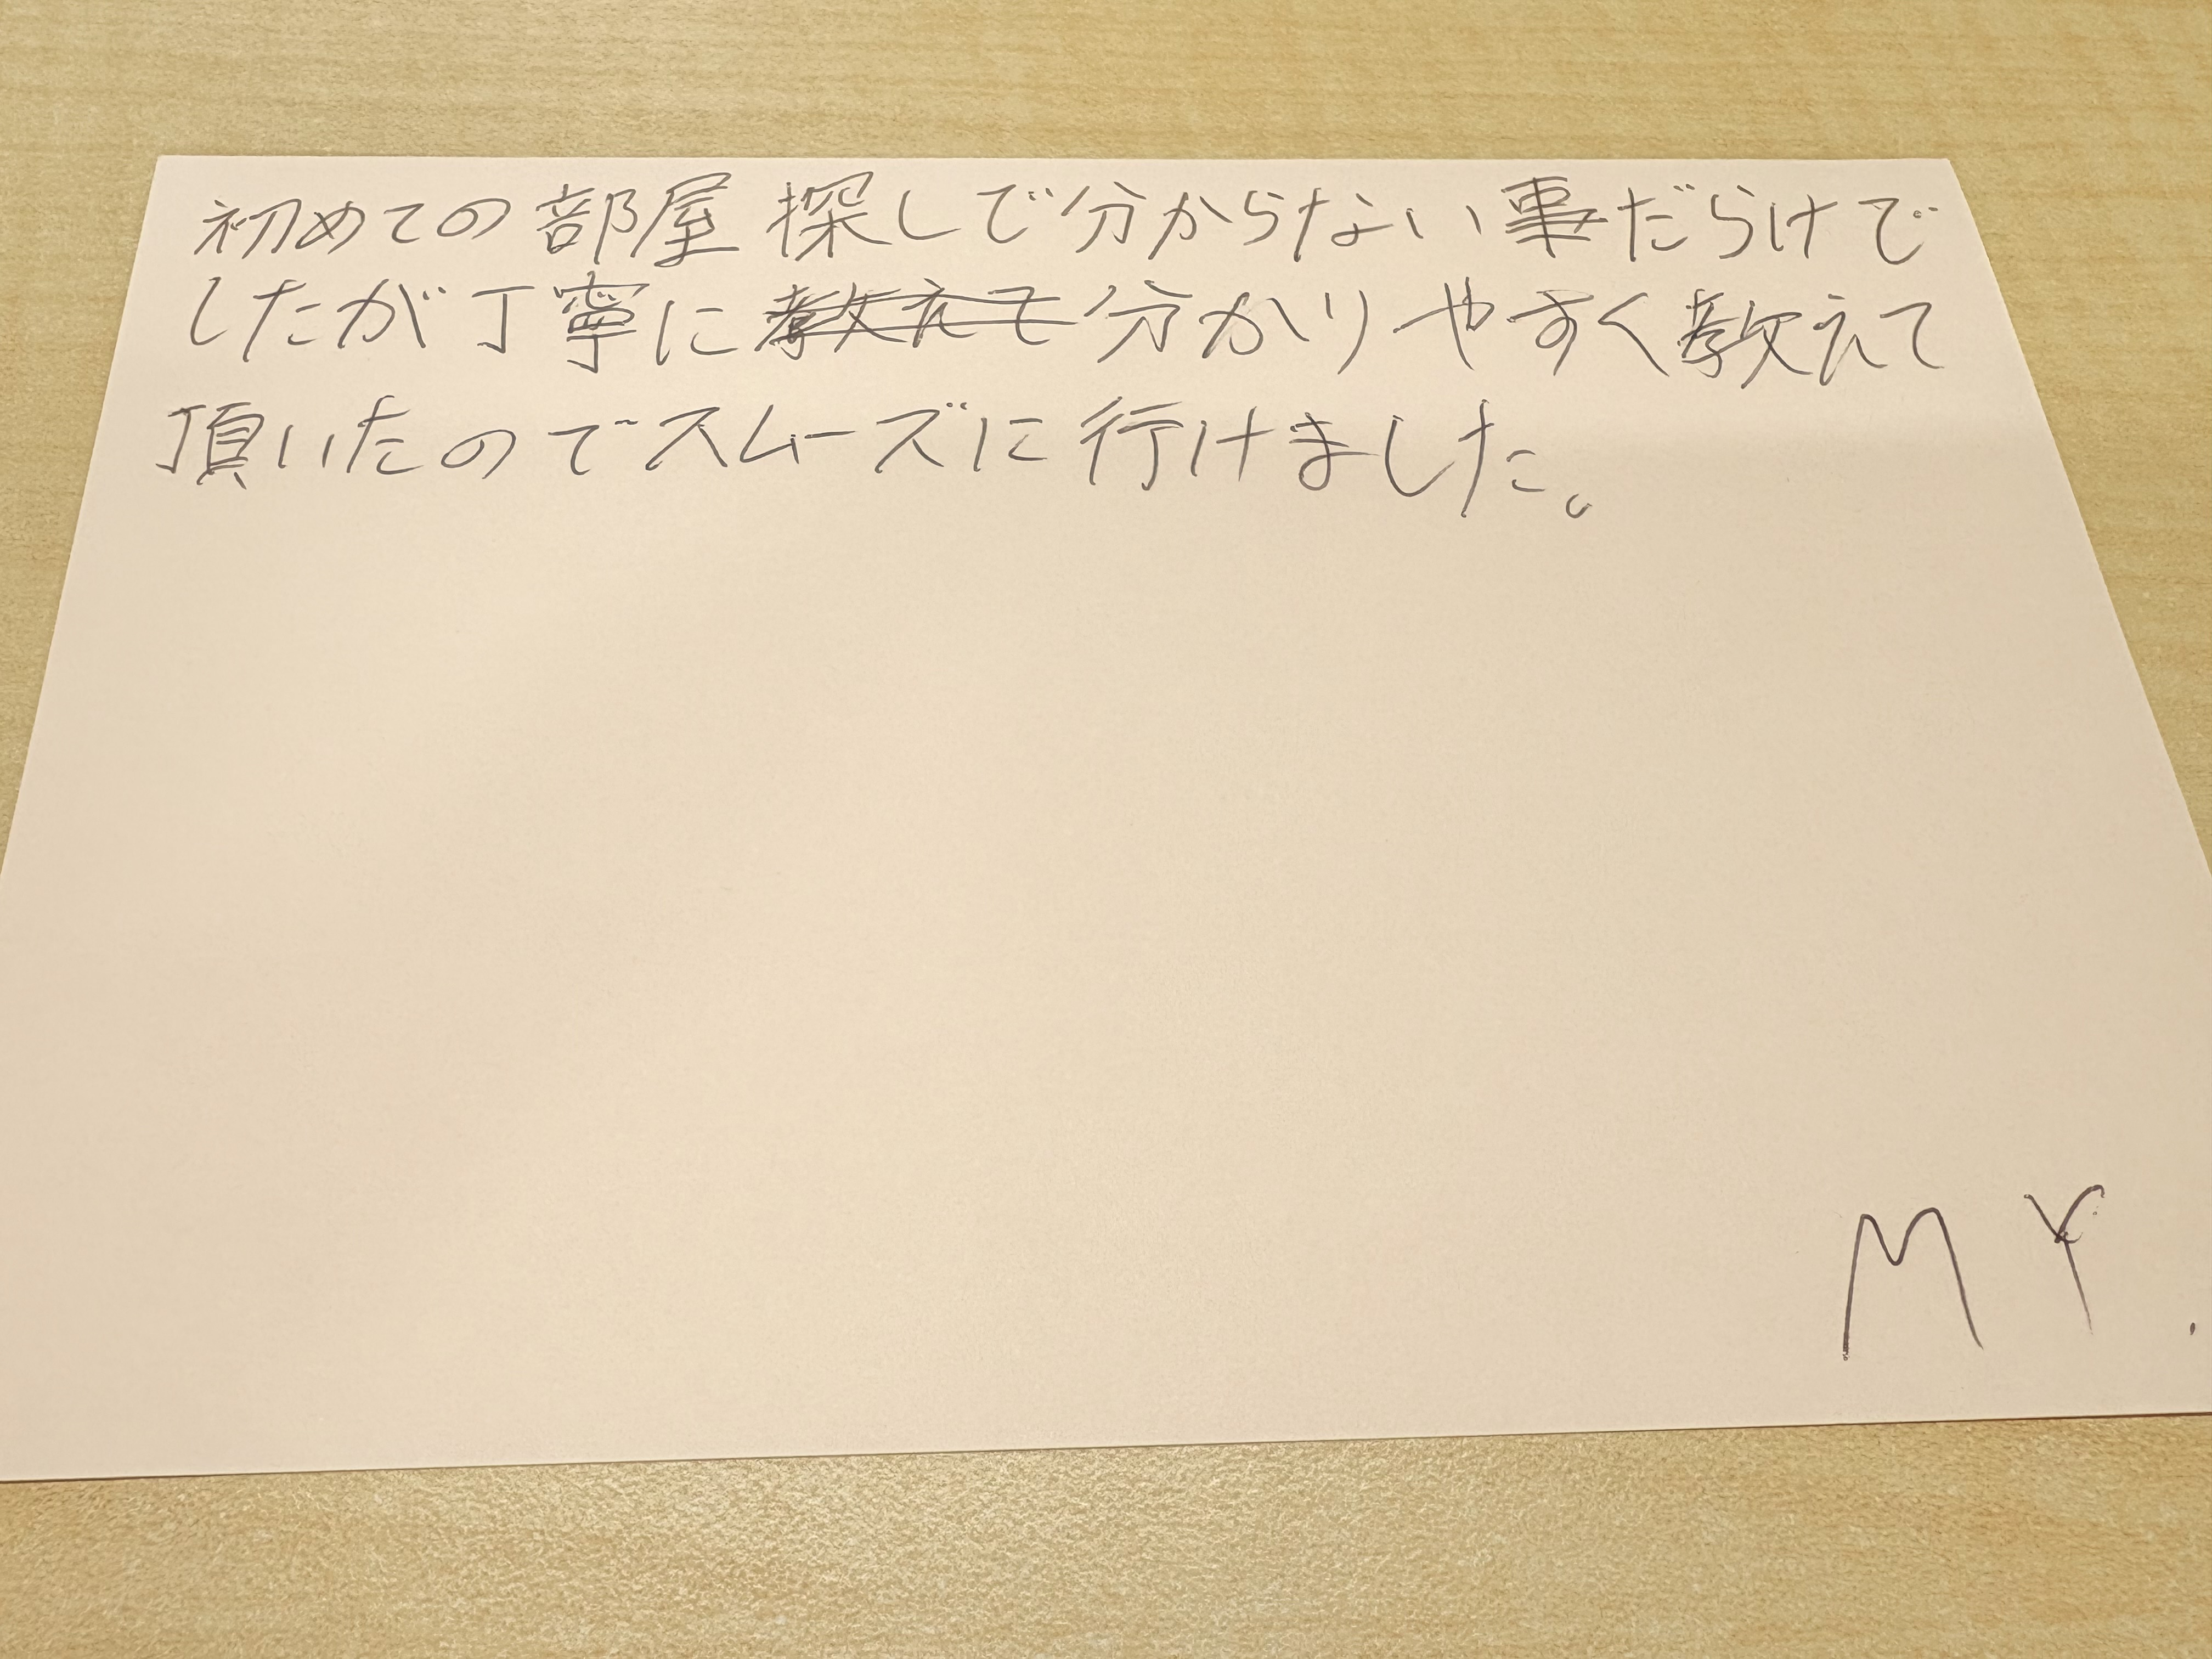 初めての部屋探しで分からない事だらけで
したが丁寧に教えて分かりやすく教えて
頂いたのでスムーズに行けました。
M Y.